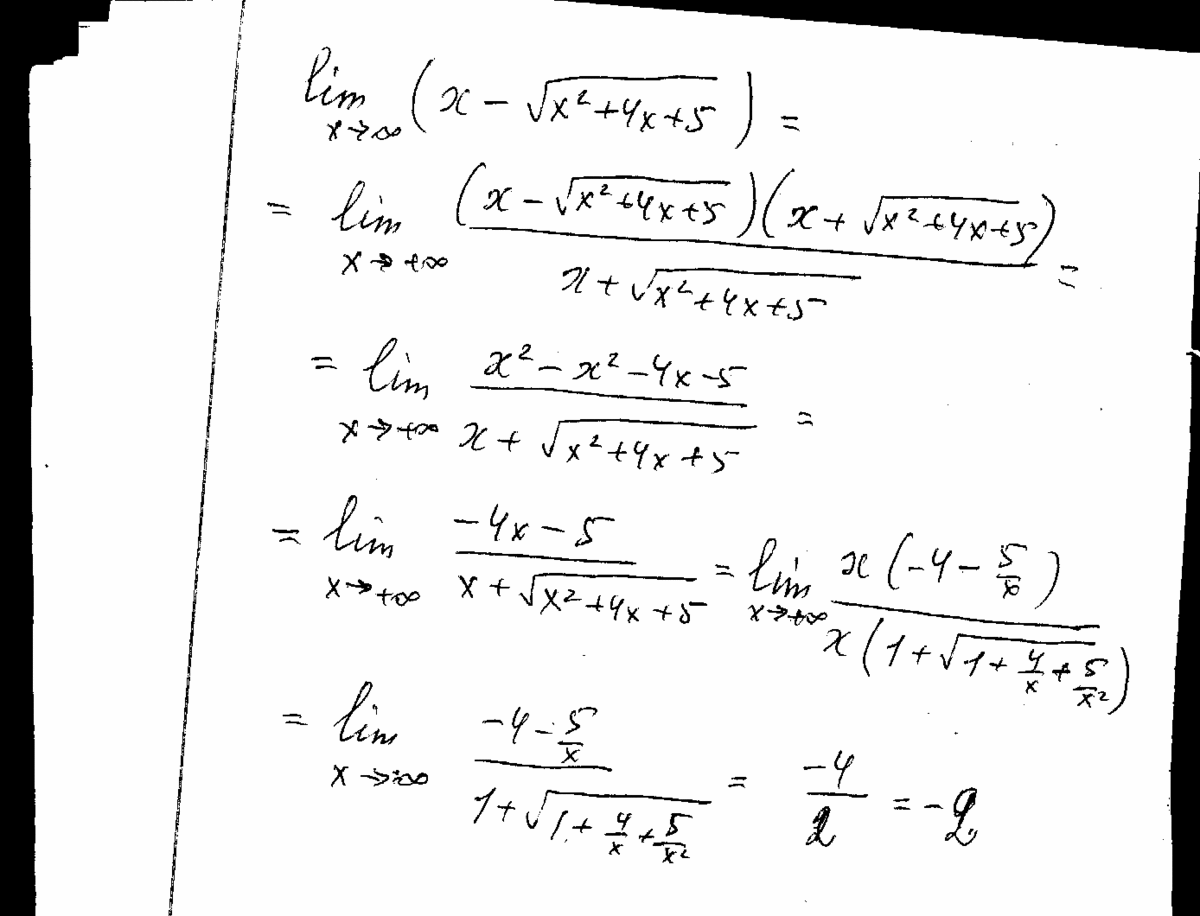 lim_{x→∞} (x − √(x²+4x+5)) =
= lim_{x→+∞} ((x − √(x²+4x+5))(x + √(x²+4x+5))) / (x + √(x²+4x+5)) =
= lim_{x→+∞} (x² − x² − 4x − 5) / (x + √(x²+4x+5)) =
= lim_{x→+∞} (−4x − 5) / (x + √(x²+4x+5)) = lim_{x→+∞} (x(−4 − 5/x)) / (x(1 + √(1 + 4/x + 5/x²)))
= lim_{x→+∞} (−4 − 5/x) / (1 + √(1 + 4/x + 5/x²)) = −4/2 = −2